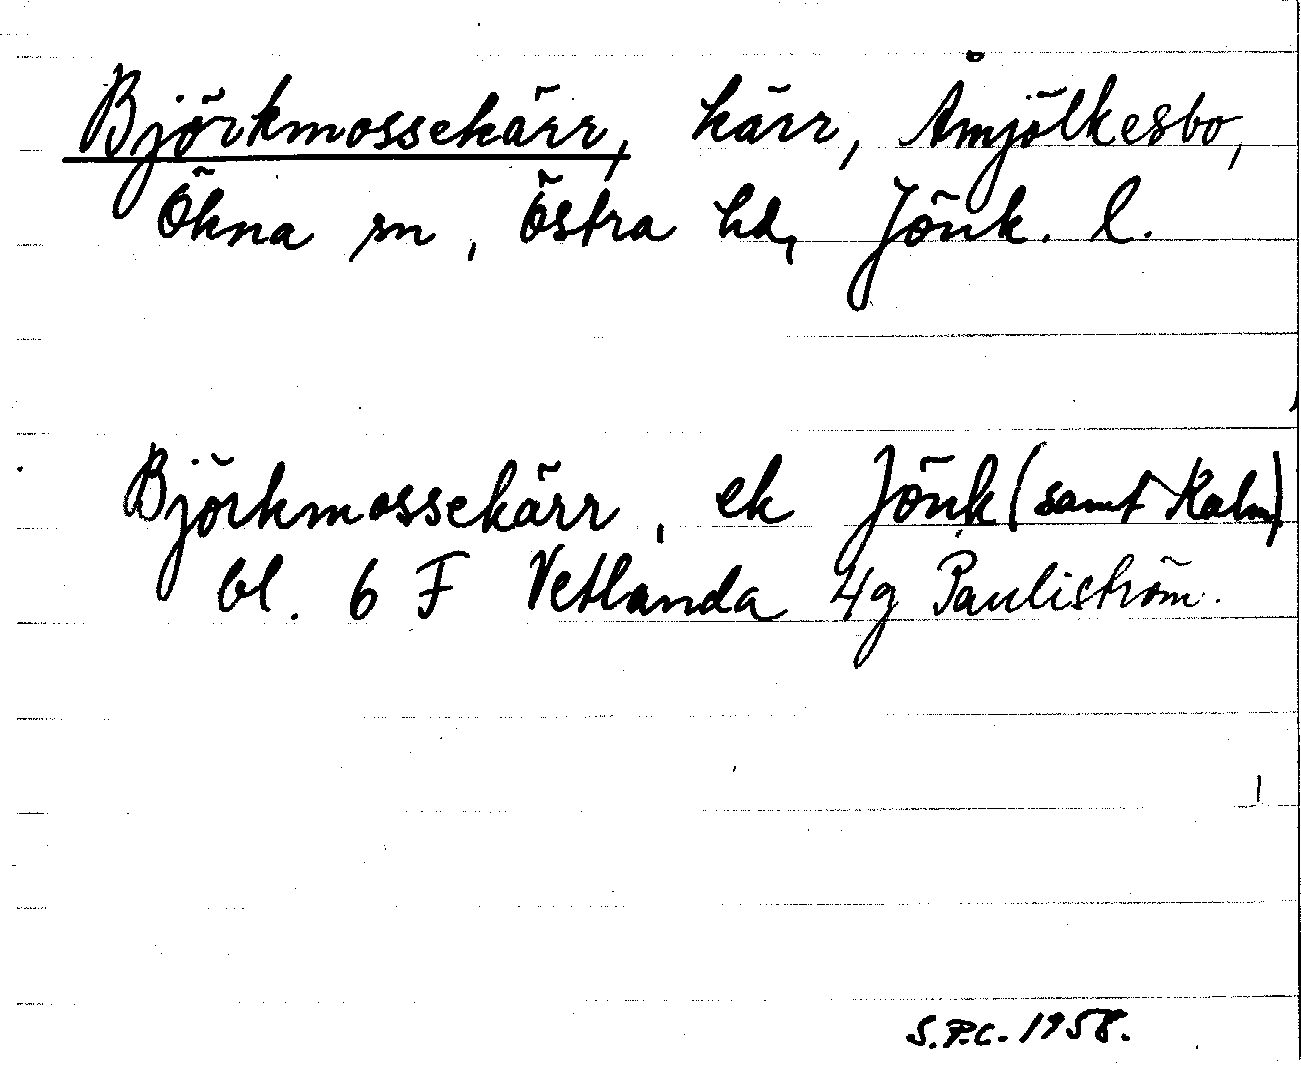 Björkmossekärr, kärr, Åmjölkesbo,
Ökna sn, Östra hd, Jönk. l.
Björkmossekärr, ek Jönk (samt Kalm)
bl. 6 F Vetlanda 4g Pauliström.
S.P.C. 1958.